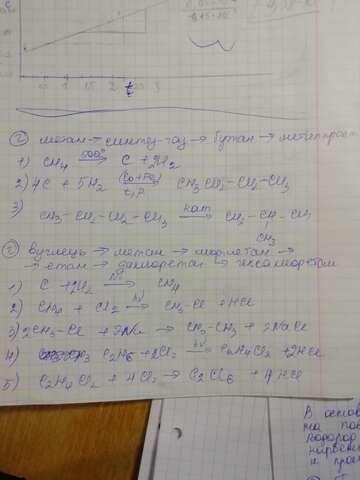 0,5 1 1,5 2 t 3
② метан → синтез-газ → бутан → метилпроп
1) CH₄ →(500°) C + 2H₂
2) 4C + 5H₂ →((Co+Fe) t,p) CH₃-CH₂-CH₂-CH₃
3) CH₃-CH₂-CH₂-CH₃ →(кат) CH₃-CH-CH₃
CH₃
② вуглець → метан → хлорметан →
→ етан → дихлоретан → гексахлоретан
1) C + 2H₂ →(Ni) CH₄
2) CH₄ + Cl₂ →(hν) CH₃-Cl + HCl
3) 2CH₃-Cl + 2Na → CH₃-CH₃ + 2NaCl
4) C₂H₆ + 2Cl₂ →(hν) C₂H₄Cl₂ + 2HCl
5) C₂H₄Cl₂ + 4Cl₂ → C₂Cl₆ + 4HCl
В основ
та
водород